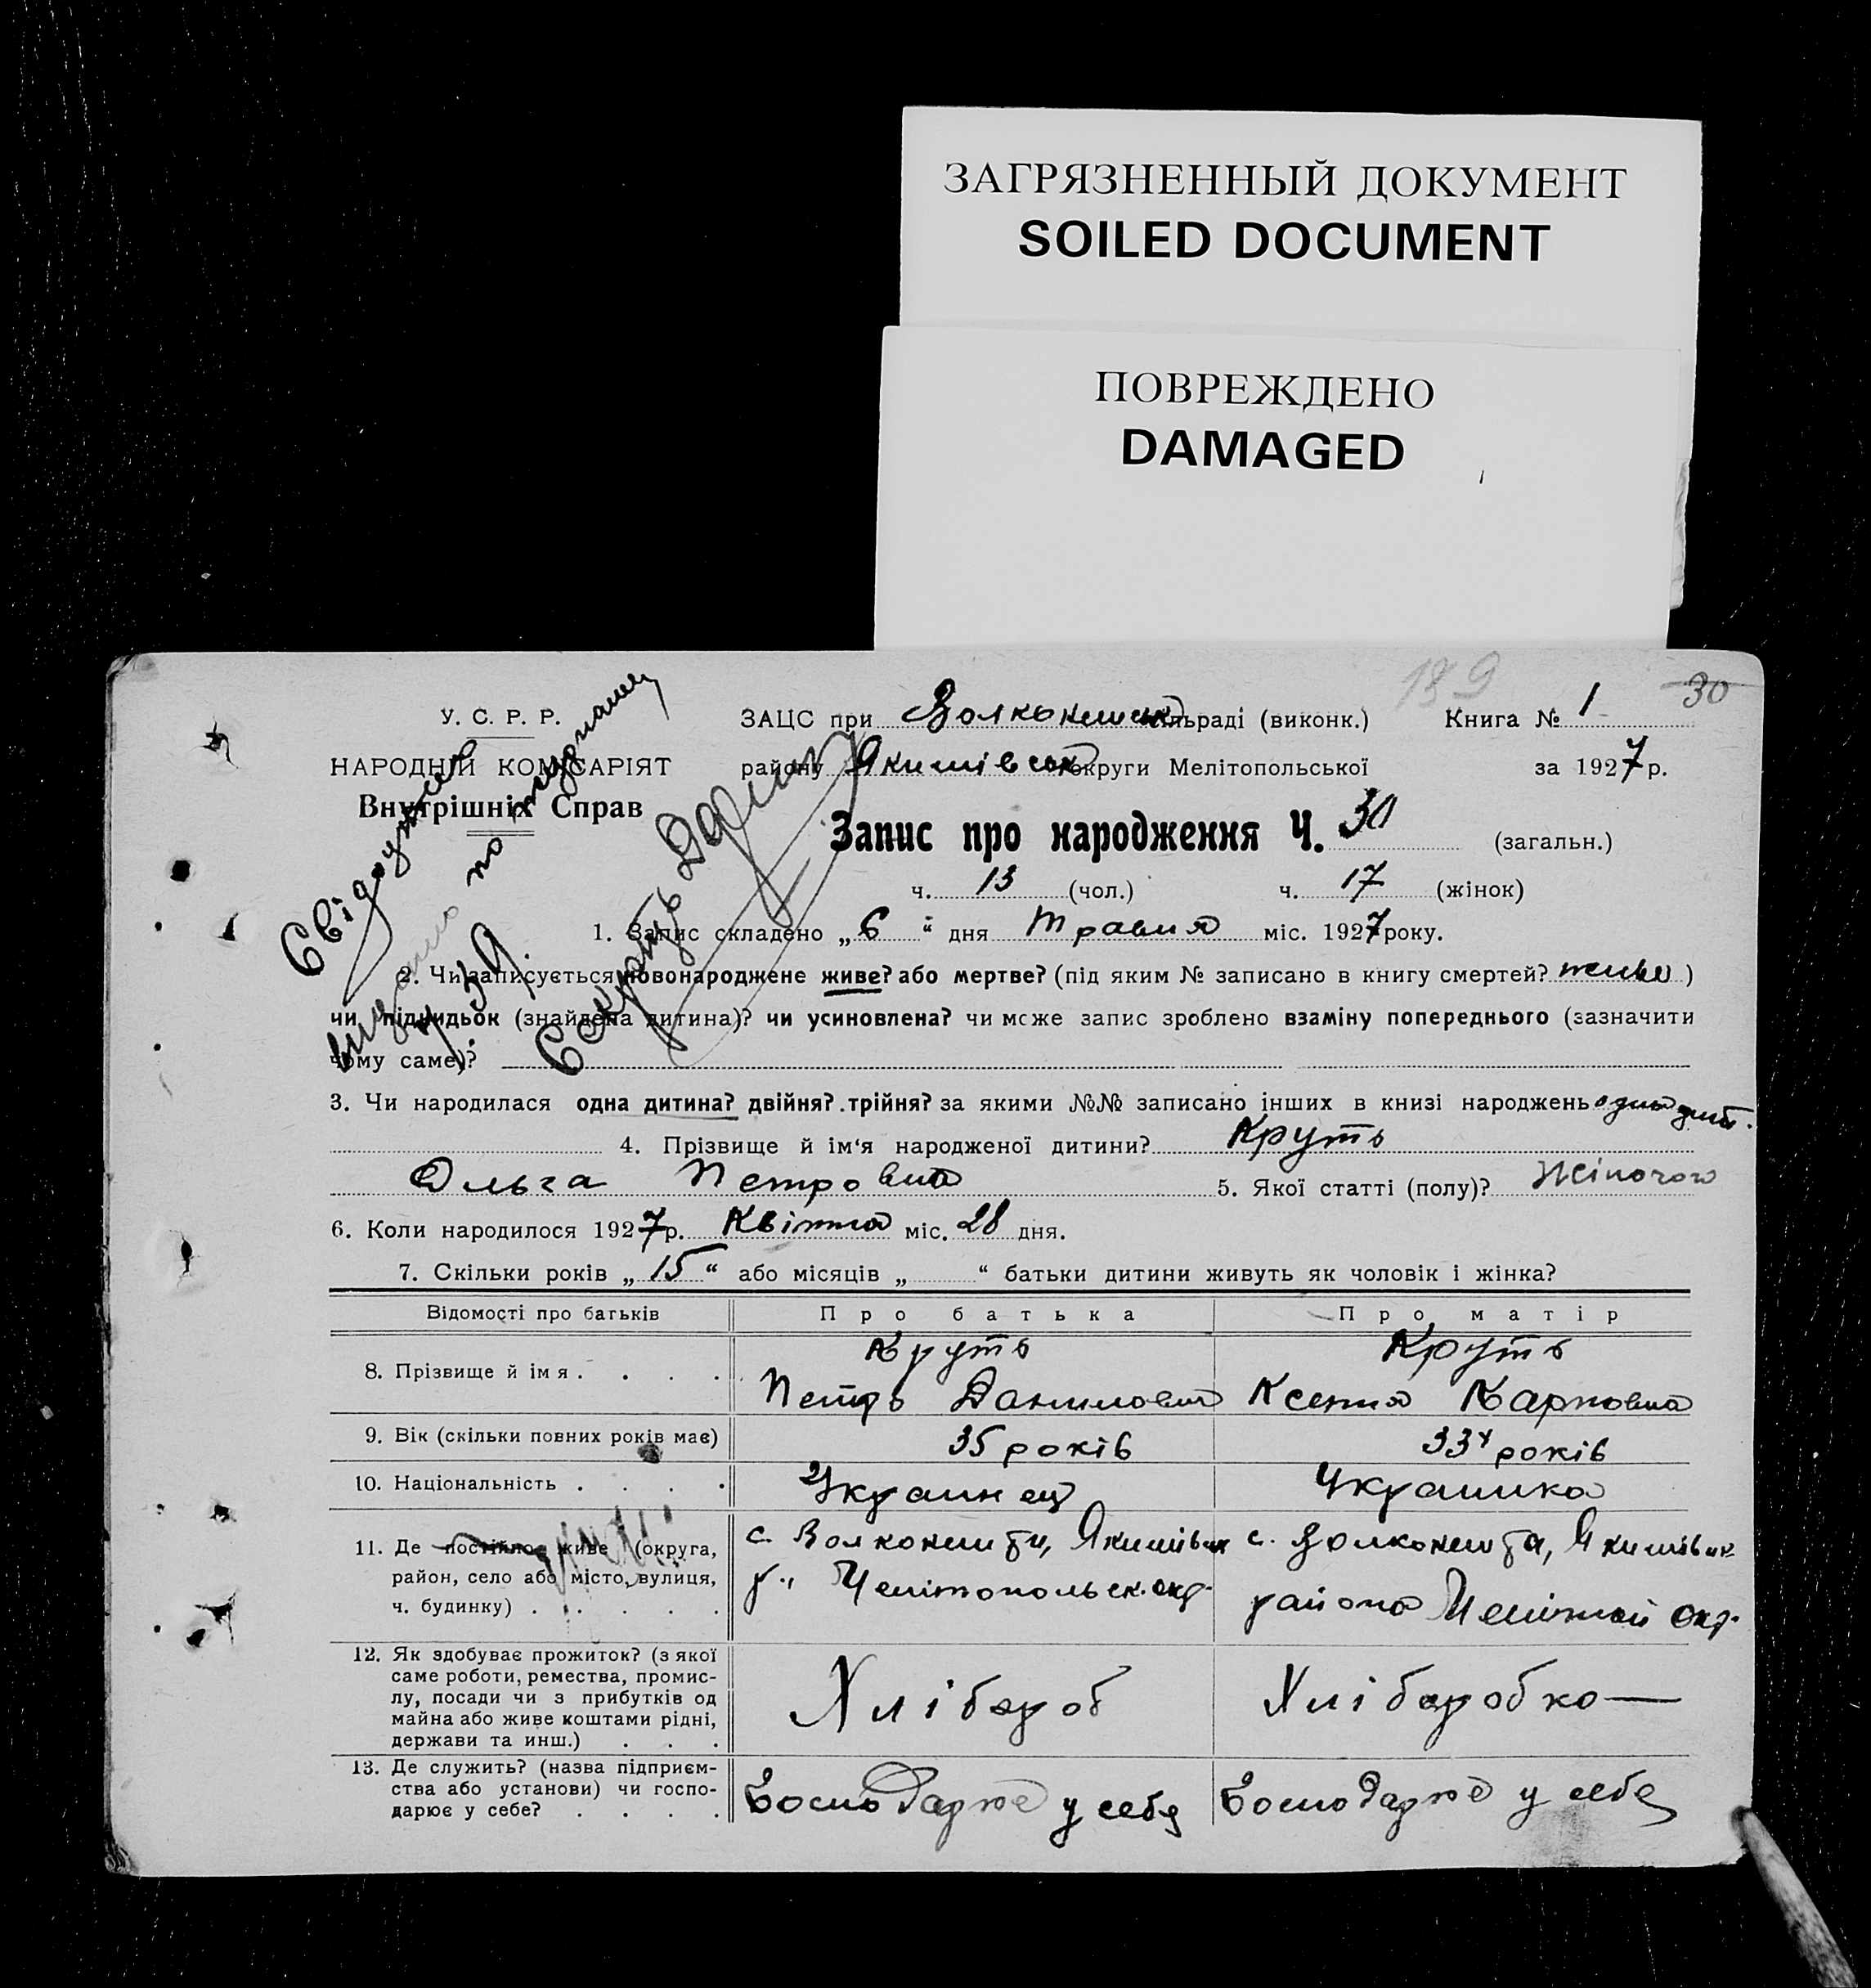 ЗАГРЯЗНЕННЫЙ ДОКУМЕНТ
SOILED DOCUMENT
ПОВРЕЖДЕНО
DAMAGED
189 30
У. С. Р. Р.
НАРОДНІЙ КОМІСАРІЯТ
Внутрішніх Справ
ЗАЦС при сільраді (виконк.) Книга № 1
району Якимівськ округи Мелітопольської за 1927 р.
Запис про народження Ч. 30 (загальн.)
ч. 13 (чол.) ч. 17 (жінок)
1. Запис складено „6“ дня Травня міс. 1927 року.
2. Чи записується новонароджене живе? або мертве? (під яким № записано в книгу смертей? живе)
чи підкидьок (знайдена дитина)? чи усиновлена? чи може запис зроблено взаміну попереднього (зазначити
чому саме)?
3. Чи народилася одна дитина? двійня? трійня? за якими №№ записано інших в книзі народжень одна дит.
4. Прізвище й ім‘я народженої дитини? Круть
Ольга Петровна 5. Якої статті (полу)? Жіночого
6. Коли народилося 1927 р. Квітня міс. 28 дня.
7. Скільки років „15“ або місяців „ “ батьки дитини живуть як чоловік і жінка?
Відомості про батьків Про батька Про матір
8. Прізвище й імя Круть Круть
Петръ Данилович Ксения Карповна
9. Вік (скільки повних років має) 35 років 33 років
10. Національність Украинец Украинка
11. Де постійно живе (округа,
район, село або місто, вулиця,
ч. будинку)
с. Волконешти, Якимівск
р., Мелітопольск. окр.
района окр.
12. Як здобуває прожиток? (з якої
саме роботи, ремества, промис-
лу, посади чи з прибутків од
майна або живе коштами рідні,
держави та инш.)
Хлібороб Хліборобка
13. Де служить? (назва підприєм-
ства або установи) чи госпо-
дарює у себе?
Господарює у себе Господарює у себе